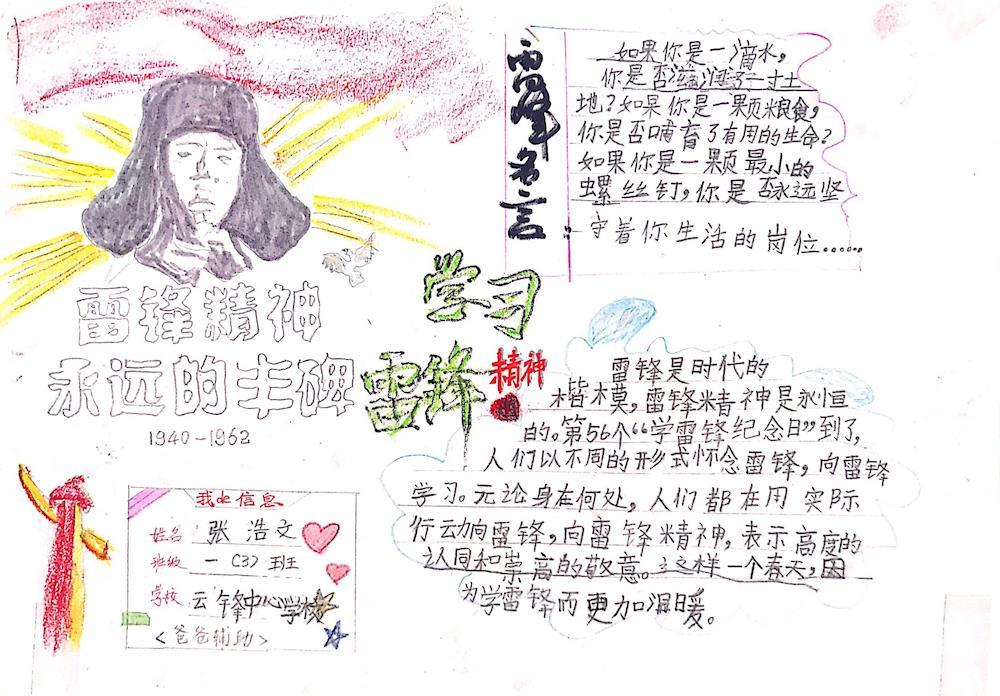 雷锋名言:
如果你是一滴水,
你是否滋润了一寸土
地?如果你是一颗粮食,
你是否哺育了有用的生命?
如果你是一颗最小的
螺丝钉,你是否永远坚
守着你生活的岗位……
雷锋精神
永远的丰碑
1940-1962
学习
雷锋
精神
雷锋是时代的
楷模,雷锋精神是永恒
的。第56个“学雷锋纪念日”到了,
人们以不同的形式怀念雷锋,向雷锋
学习。无论身在何处,人们都在用实际
行动向雷锋,向雷锋精神,表示高度的
认同和崇高的敬意。这样一个春天,因
为学雷锋而更加温暖。
我de信息
姓名 张浩文
班级 一(3)班
学校 云锋中心学校
<爸爸辅助>